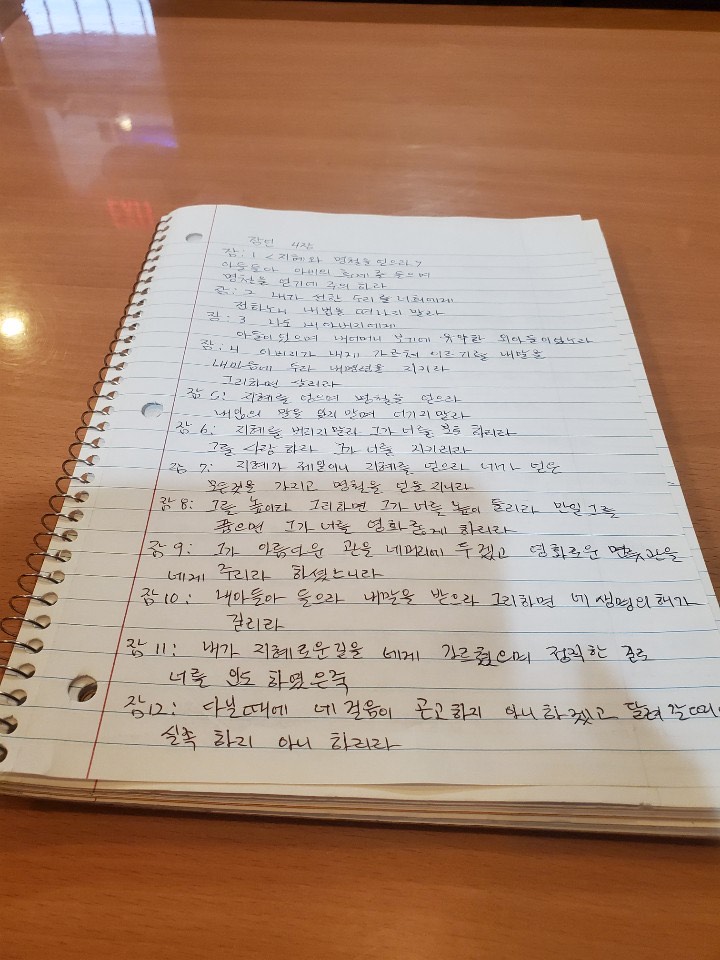 잠언 4장
잠: 1 < 지혜와 명철을 얻으라 >
아들들아 아비의 훈계를 들으며
명철을 얻기에 주의 하라
잠: 2 내가 선한 도리를 너희에게
전하노니 내법을 떠나지 말라
잠: 3 나도 내 아버지에게
아들이었으며 내어머니 보기에 유약한 외아들이었노라
잠: 4 아버지가 내게 가르쳐 이르기를 내말을
네마음에 두라 내명령을 지키라
그리하면 살리라
잠 5: 지혜를 얻으며 명철을 얻으라
내입의 말을 잊지말며 어기지말라
잠 6: 지혜를 버리지말라 그가 너를 보호 하리라
그를 사랑 하라 그가 너를 지키리라
잠 7: 지혜가 제일이니 지혜를 얻으라 네가 얻은
모든것을 가지고 명철을 얻을지니라
잠 8: 그를 높이라 그리하면 그가 너를 높이 들리라 만일 그를
품으면 그가 너를 영화롭게 하리라
잠 9: 그가 아름다운 관을 네머리에 두겠고 영화로운 면류관을
네게 주리라 하셨느니라
잠 10: 내아들아 들으라 내말을 받으라 그리하면 네 생명의 해가
길리라
잠 11: 내가 지혜로운길을 네게 가르쳤으며 정직한 길로
너를 인도 하였은즉
잠12: 다닐때에 네 걸음이 곤고하지 아니하겠고 달려 갈때에
실족 하지 아니 하리라